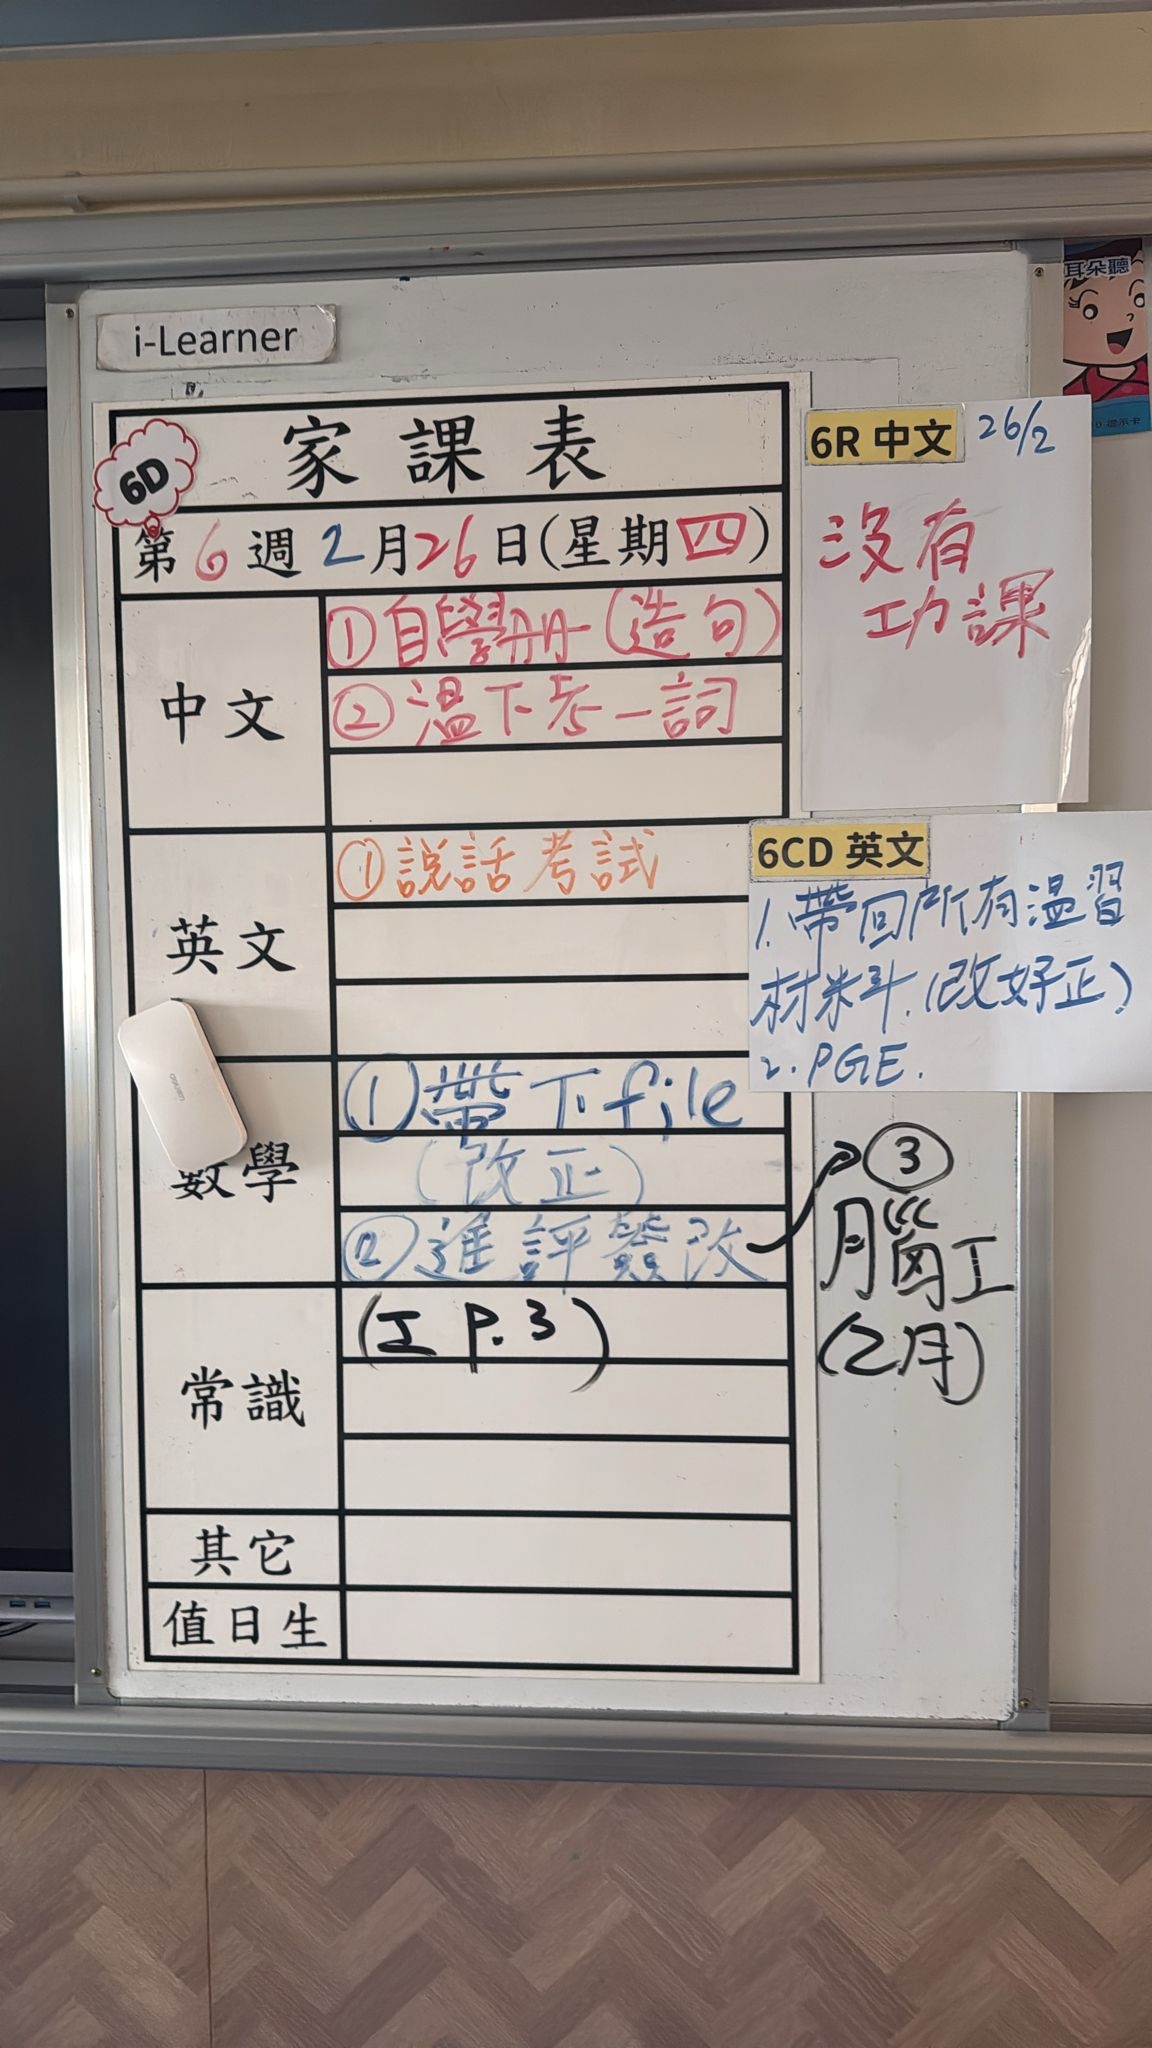 i-Learner
6D
家課表
第6週2月26日(星期四)
中文
①自學册(造句)
②溫下考一詞
英文
①說話考試
數學
①帶下file
(改正)
②進評發改
(工 P.3)
③
腦工
(2月)
常識
其它
值日生
6R 中文 26/2
沒有
功課
6CD 英文
1.帶回所有溫習
材料.(改好正)
2.PGE.
耳朵聽
提示卡